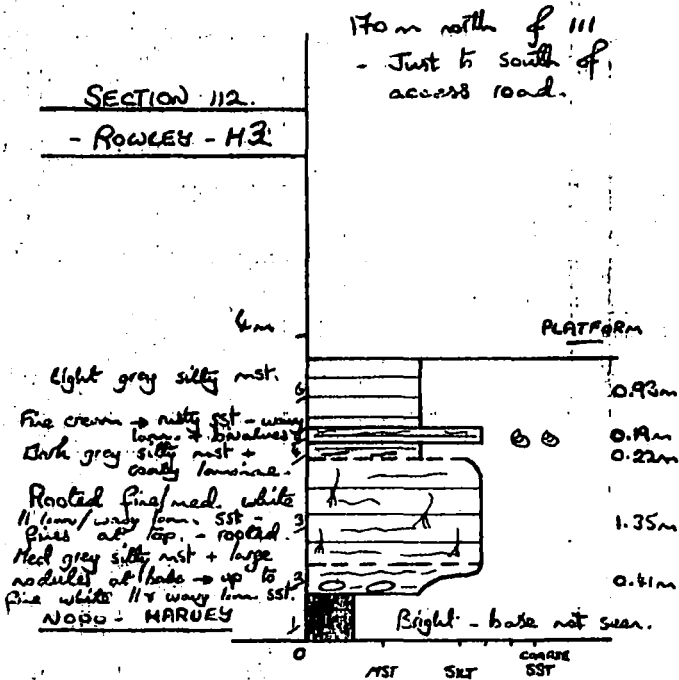 170m north of 111
- Just to south of
access road.
SECTION 112.
- ROWLEY - H3
4m
PLATFORM
Light grey silty mst.
6
0.92m
Fine cream → rusty sst - wavy
lam. + bivalves
0.19m
Dark grey silty mst +
coaly laminae.
4
0.22m
Rooted fine/med. white
// lam/wavy lam. sst -
fines at top. - rooted.
3
1.35m
Med grey silty mst + large
nodules at base → up to
fine white // & wavy lam sst.
0.41m
NODU - HARVEY
1
Bright - base not seen.
0
MST
SILT
COARSE
SST